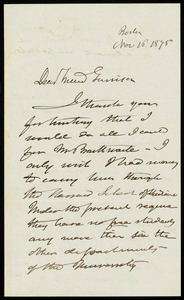 Boston
Nov 16 1875
Dear Friend Garrison
I thank you
for hinting that I
would do all I could
for Mr
only wish I had money
to carry him through
the Harvard School of Medicine
Under the present regime
they have no free students
any more than in the
other departments
of the University